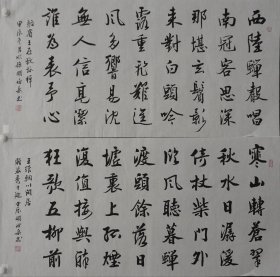 西陸蟬聲唱
南冠客思深
那堪玄鬢影
来對白頭吟
露重飛難進
風多響易沉
無人信高潔
誰為表予心
駱賓王在獄咏蟬
寒山轉蒼翠
秋水日潺湲
倚杖柴門外
臨風聽暮蟬
渡頭餘落日
墟裏上孤煙
復值接輿醉
狂歌五柳前
王維輞川閒居